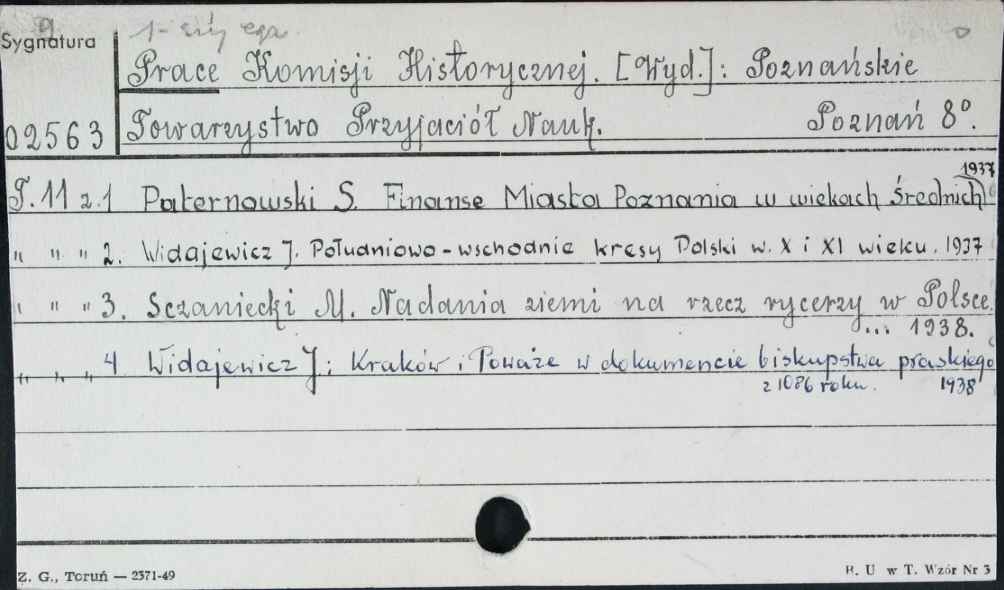 9
Sygnatura
02563
Prace Komisji Historycznej. [Wyd.]: Poznańskie
Towarzystwo Przyjaciół Nauk. Poznań 8°.
T. 11 z. 1 Paternowski S. Finanse Miasta Poznania w wiekach średnich 1937
" " " 2. Widajewicz J. Południowo-wschodnie kresy Polski w. X i XI wieku. 1937
" " " 3. Sczaniecki M. Nadania ziemi na rzecz rycerzy w Polsce.
... 1938.
" " " 4 Widajewicz J.; Kraków i Poważe w dokumencie biskupstwa praskiego
z 1086 roku. 1938
Z. G., Toruń — 2371-49
B. U w T. Wzór Nr 3